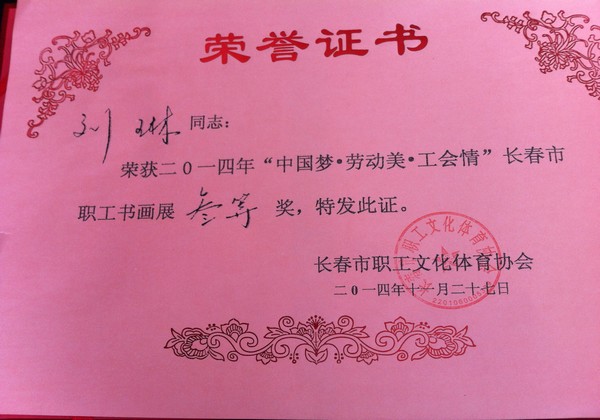 荣誉证书
刘琳 同志：
荣获二0一四年“中国梦·劳动美·工会情”长春市
职工书画展 叁等 奖，特发此证。
长春市职工文化体育协会
二0一四年十一月二十七日
长春市职工文化体育协会